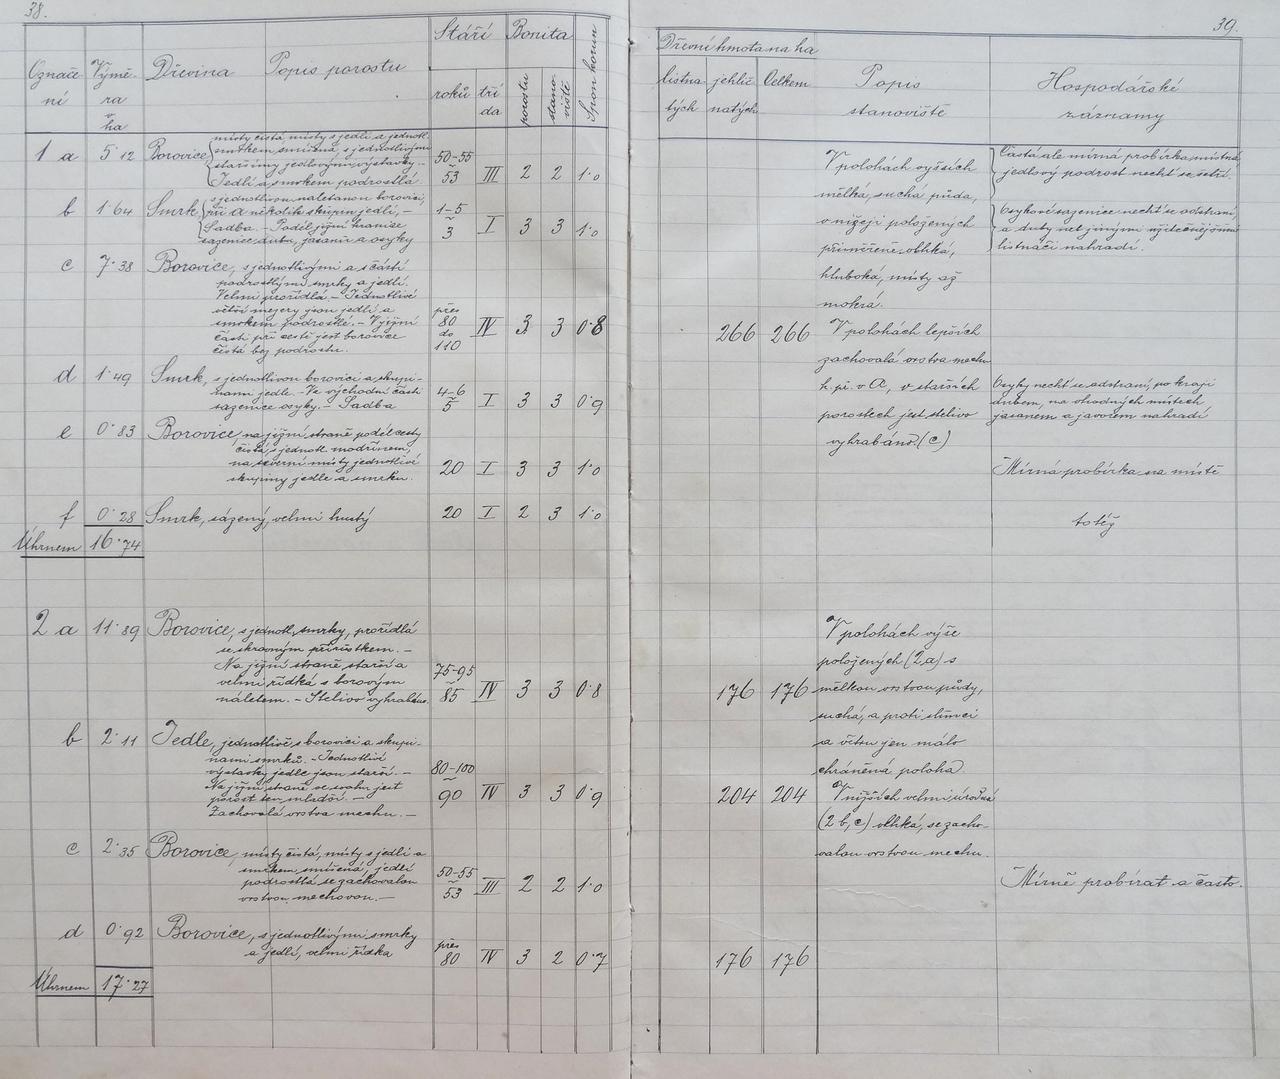 38.
Označe
ní
Výmě-
ra
v
ha
Dřevina
Popis porostu
Stáří
roků
tří
da
Bonita
porostu
stano-
viště
Spon korun
1 a 5·12 Borovice místy čistá místy s jedlí a jednotl.
smrkem smíšená, s jednotlivými
staršími jedlovými výstavky.-
Jedlí a smrkem podrostlá.
50-55
53 III 2 2 1·0
b 1·64 Smrk s jednotlivou nalétanou borovicí,
při a několik skupin jedlí,-
Sadba.- Podél jižní hranice
sazenice dubu, jasanu a osyky
1-5
3 I 3 3 1·0
c 7·38 Borovice, s jednotlivými a sčásti
podrostlými smrky a jedlí.
Velmi prořídlá.- Jednotlivé
větší mezery jsou jedlí a
smrkem podrostlé.- V jižní
části při cestě jest borovice
čistá bez podrostu.
přes
80
do
110
IV 3 3 0·8
d 1·49 Smrk, s jednotlivou borovicí a skupi-
nami jedle.- Ve východní části
sazenice osyky.- Sadba
4-6
5 I 3 3 0·9
e 0·83 Borovice, na jižní straně podél cesty
čistá, s jednotl. modřínem,
na severní místy jednotlivé
skupiny jedle a smrku.
20 I 3 3 1·0
f 0·28 Smrk, sázený, velmi hustý 20 I 2 3 1·0
Úhrnem 16·74
2 a 11·89 Borovice, s jednotl. smrky, prořídlá
se skrovným přírůstkem.-
Na jižní straně starší a
velmi řídká s borovým
náletem.- Stelivo vyhrabáno.
75-95
85 IV 3 3 0·8
b 2·11 Jedle, jednotlivě s borovicí a skupi-
nami smrků.- Jednotlivé
výstavky jedle jsou starší.-
Na jižní straně se svahu jest
porost ten mladší.-
Zachovalá vrstva mechu.-
80-100
90 IV 3 3 0·9
c 2·35 Borovice, místy čistá, místy s jedlí a
smrkem smíšená, jedlí
podrostlá se zachovalou
vrstvou mechovou.-
50-55
53 III 2 2 1·0
d 0·92 Borovice, s jednotlivými smrky
a jedlí, velmi řídká
přes
80 IV 3 2 0·7
Úhrnem 17·27
39.
Dřevní hmota na ha
listna
tých
jehlič
natých
Celkem
Popis
stanoviště
Hospodářské
záznamy
V polohách vyšších
mělká, suchá půda,
v nížeji položených
přiměřeně vlhká,
hluboká, místy až
mokrá.
Častá ale mírná probírka, místná
jedlový podrost nechť se šetří.
Osykové sazenice nechť se odstraní,
a duby neb jinými užitečnějšími
listnáči nahradí.
266 266 V polohách lepších
zachovalá vrstva mechu
k. př. v a, v starších
porostech jest stelivo
vyhrabáno. (c)
Osyky nechť se odstraní, po kraji
dubem, na vhodných místech
jasanem a javorem nahradí
Mírná probírka na místě
totéž
V polohách výše
položených (2a) s
176 176 mělkou vrstvou půdy,
suchá, a proti slunci
a větru jen málo
chráněná poloha
204 204 V nižších velmi úrodná
(2 b, c) vlhká, se zacho-
valou vrstvou mechu.
Mírně probírat a často.
176 176